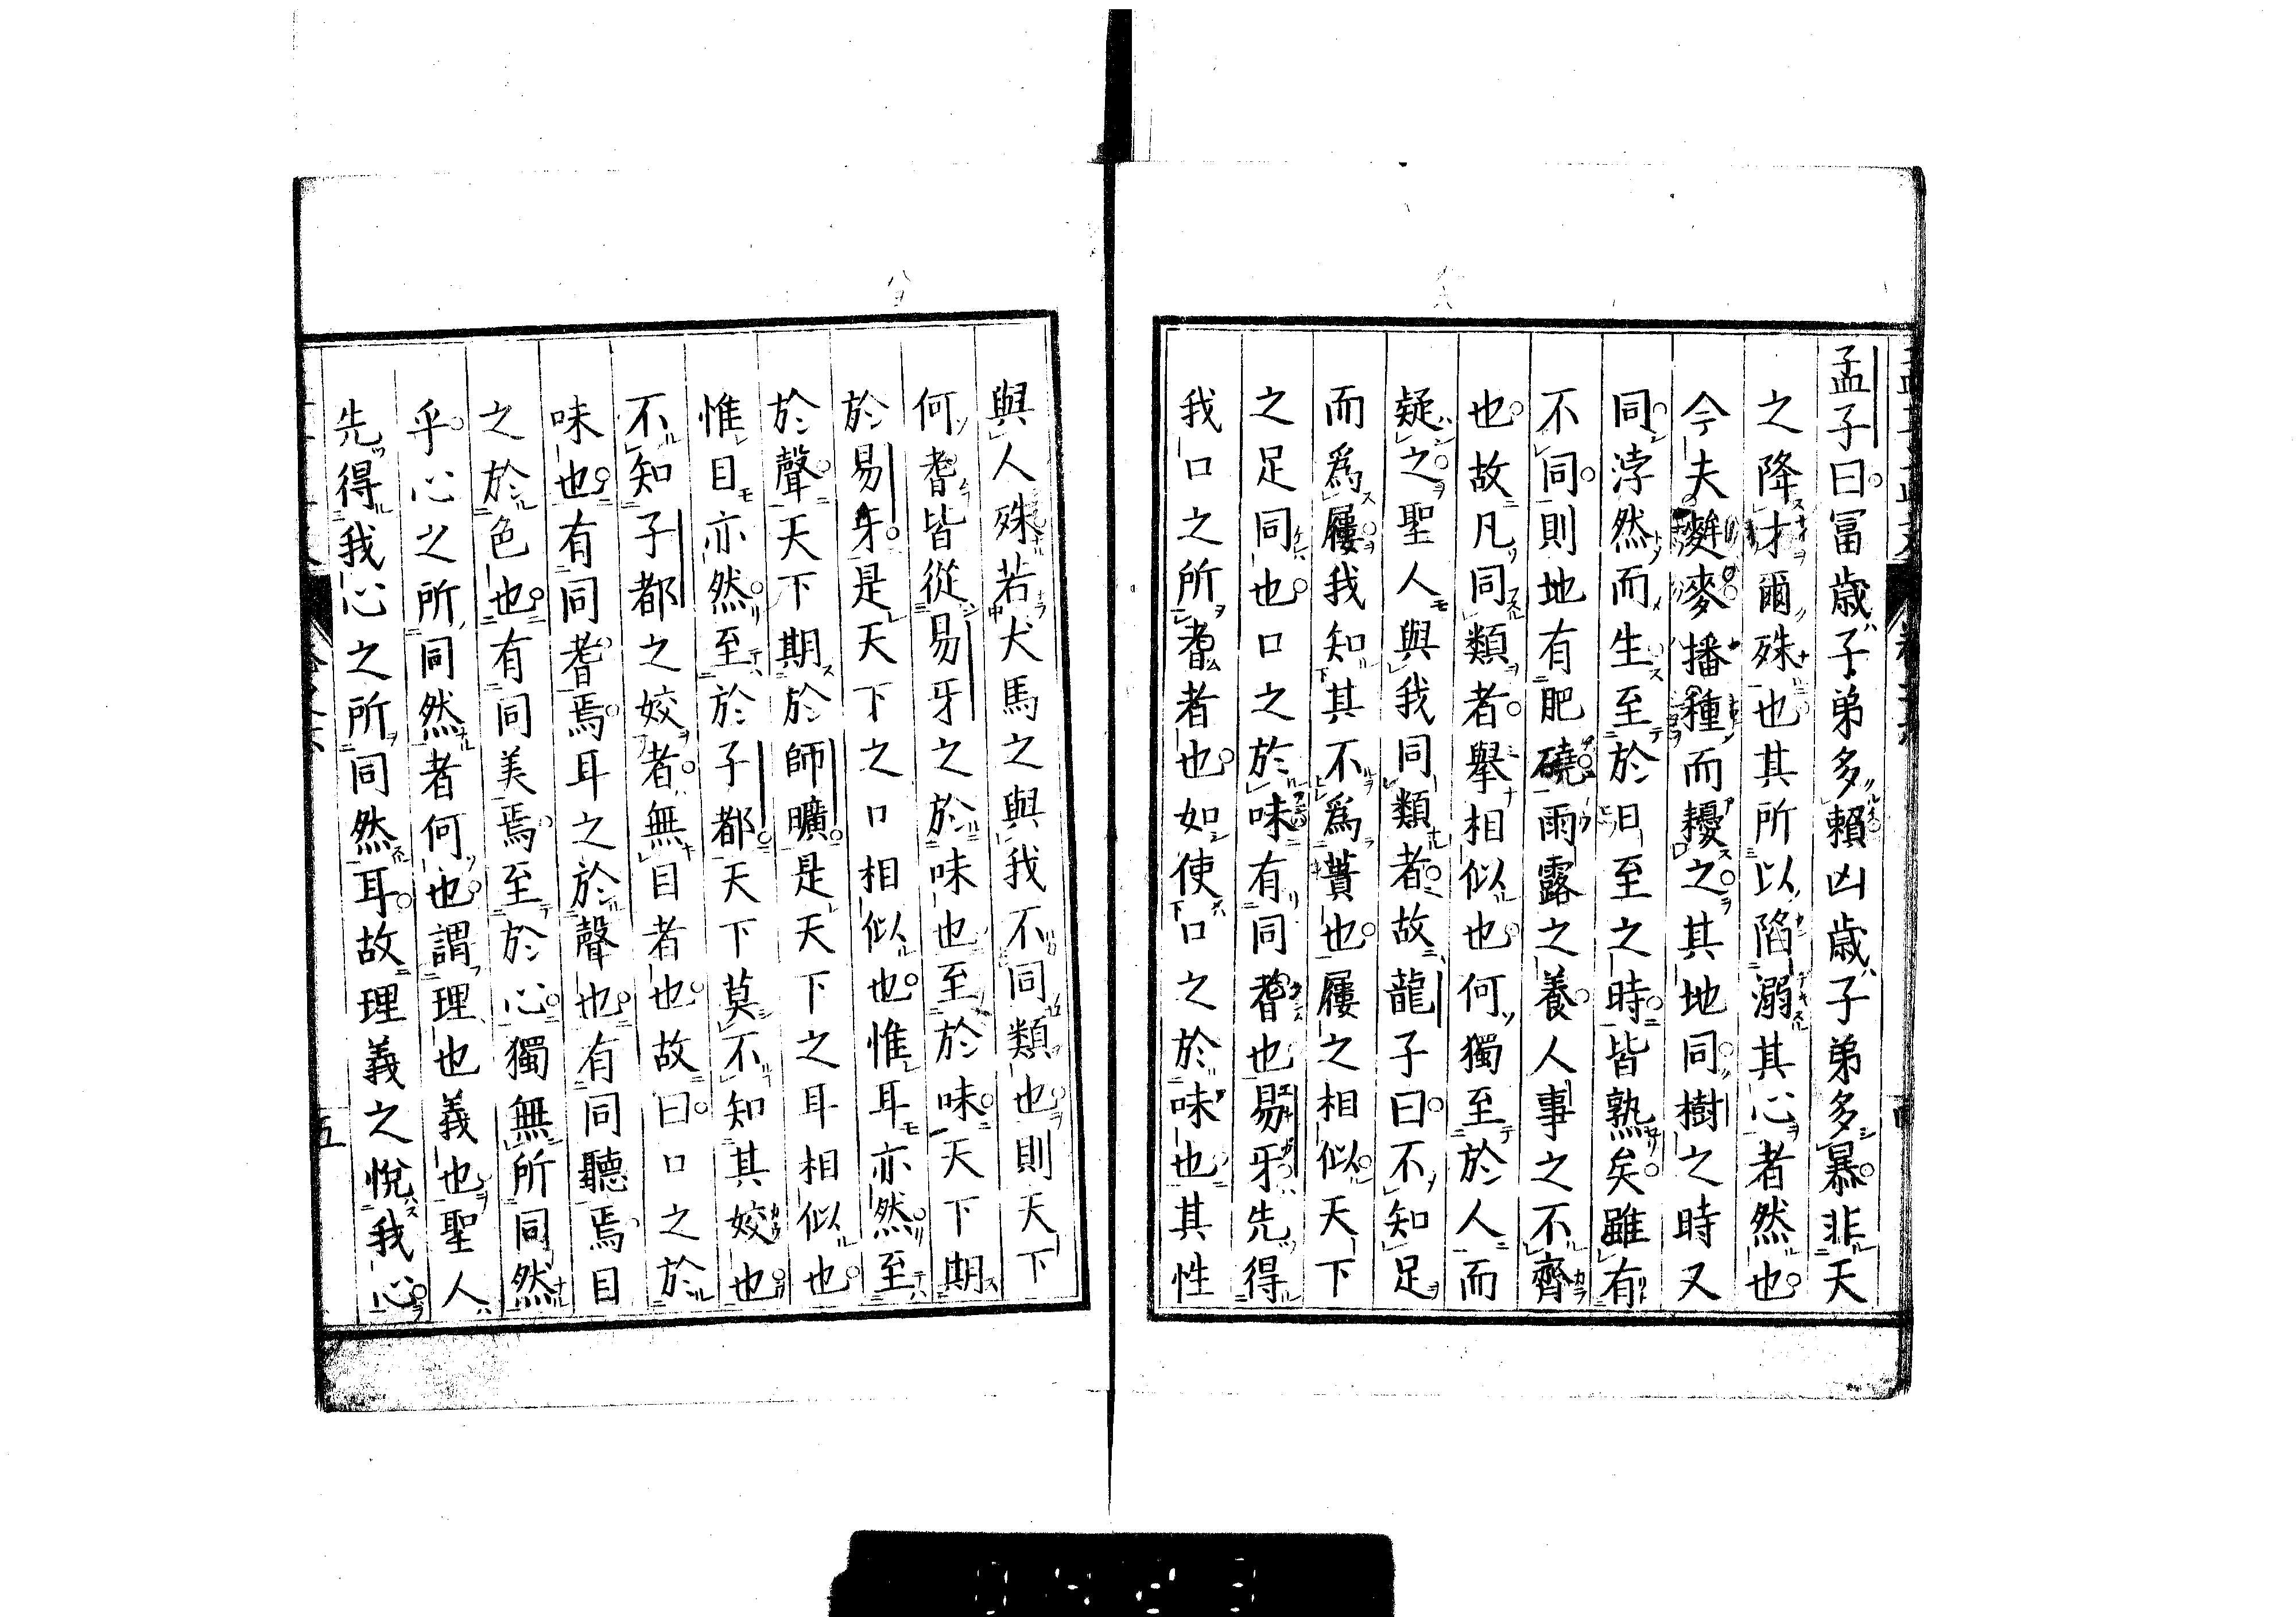 孟子曰富歲子弟多賴凶歲子弟多暴非天
之降才爾殊也其所以陷溺其心者然也
今夫麰麥播種而耰之其地同樹之時又
同浡然而生至於日至之時皆熟矣雖有
不同則地有肥磽雨露之養人事之不齊
也故凡同類者舉相似也何獨至於人而
疑之聖人與我同類者故龍子曰不知足
而爲屨我知其不爲蕢也屨之相似天下
之足同也口之於味有同耆也易牙先得
我口之所耆者也如使口之於味也其性
與人殊若犬馬之與我不同類也則天下
何耆皆從易牙之於味也至於味天下期
於易牙是天下之口相似也惟耳亦然至
於聲天下期於師曠是天下之耳相似也
惟目亦然至於子都天下莫不知其姣也
不知子都之姣者無目者也故曰口之於
味也有同耆焉耳之於聲也有同聽焉目
之於色也有同美焉至於心獨無所同然
乎心之所同然者何也謂理也義也聖人
先得我心之所同然耳故理義之悅我心
五